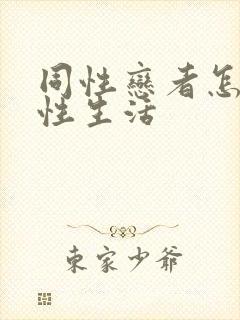 同性戀者怎
性生活
東家少爺